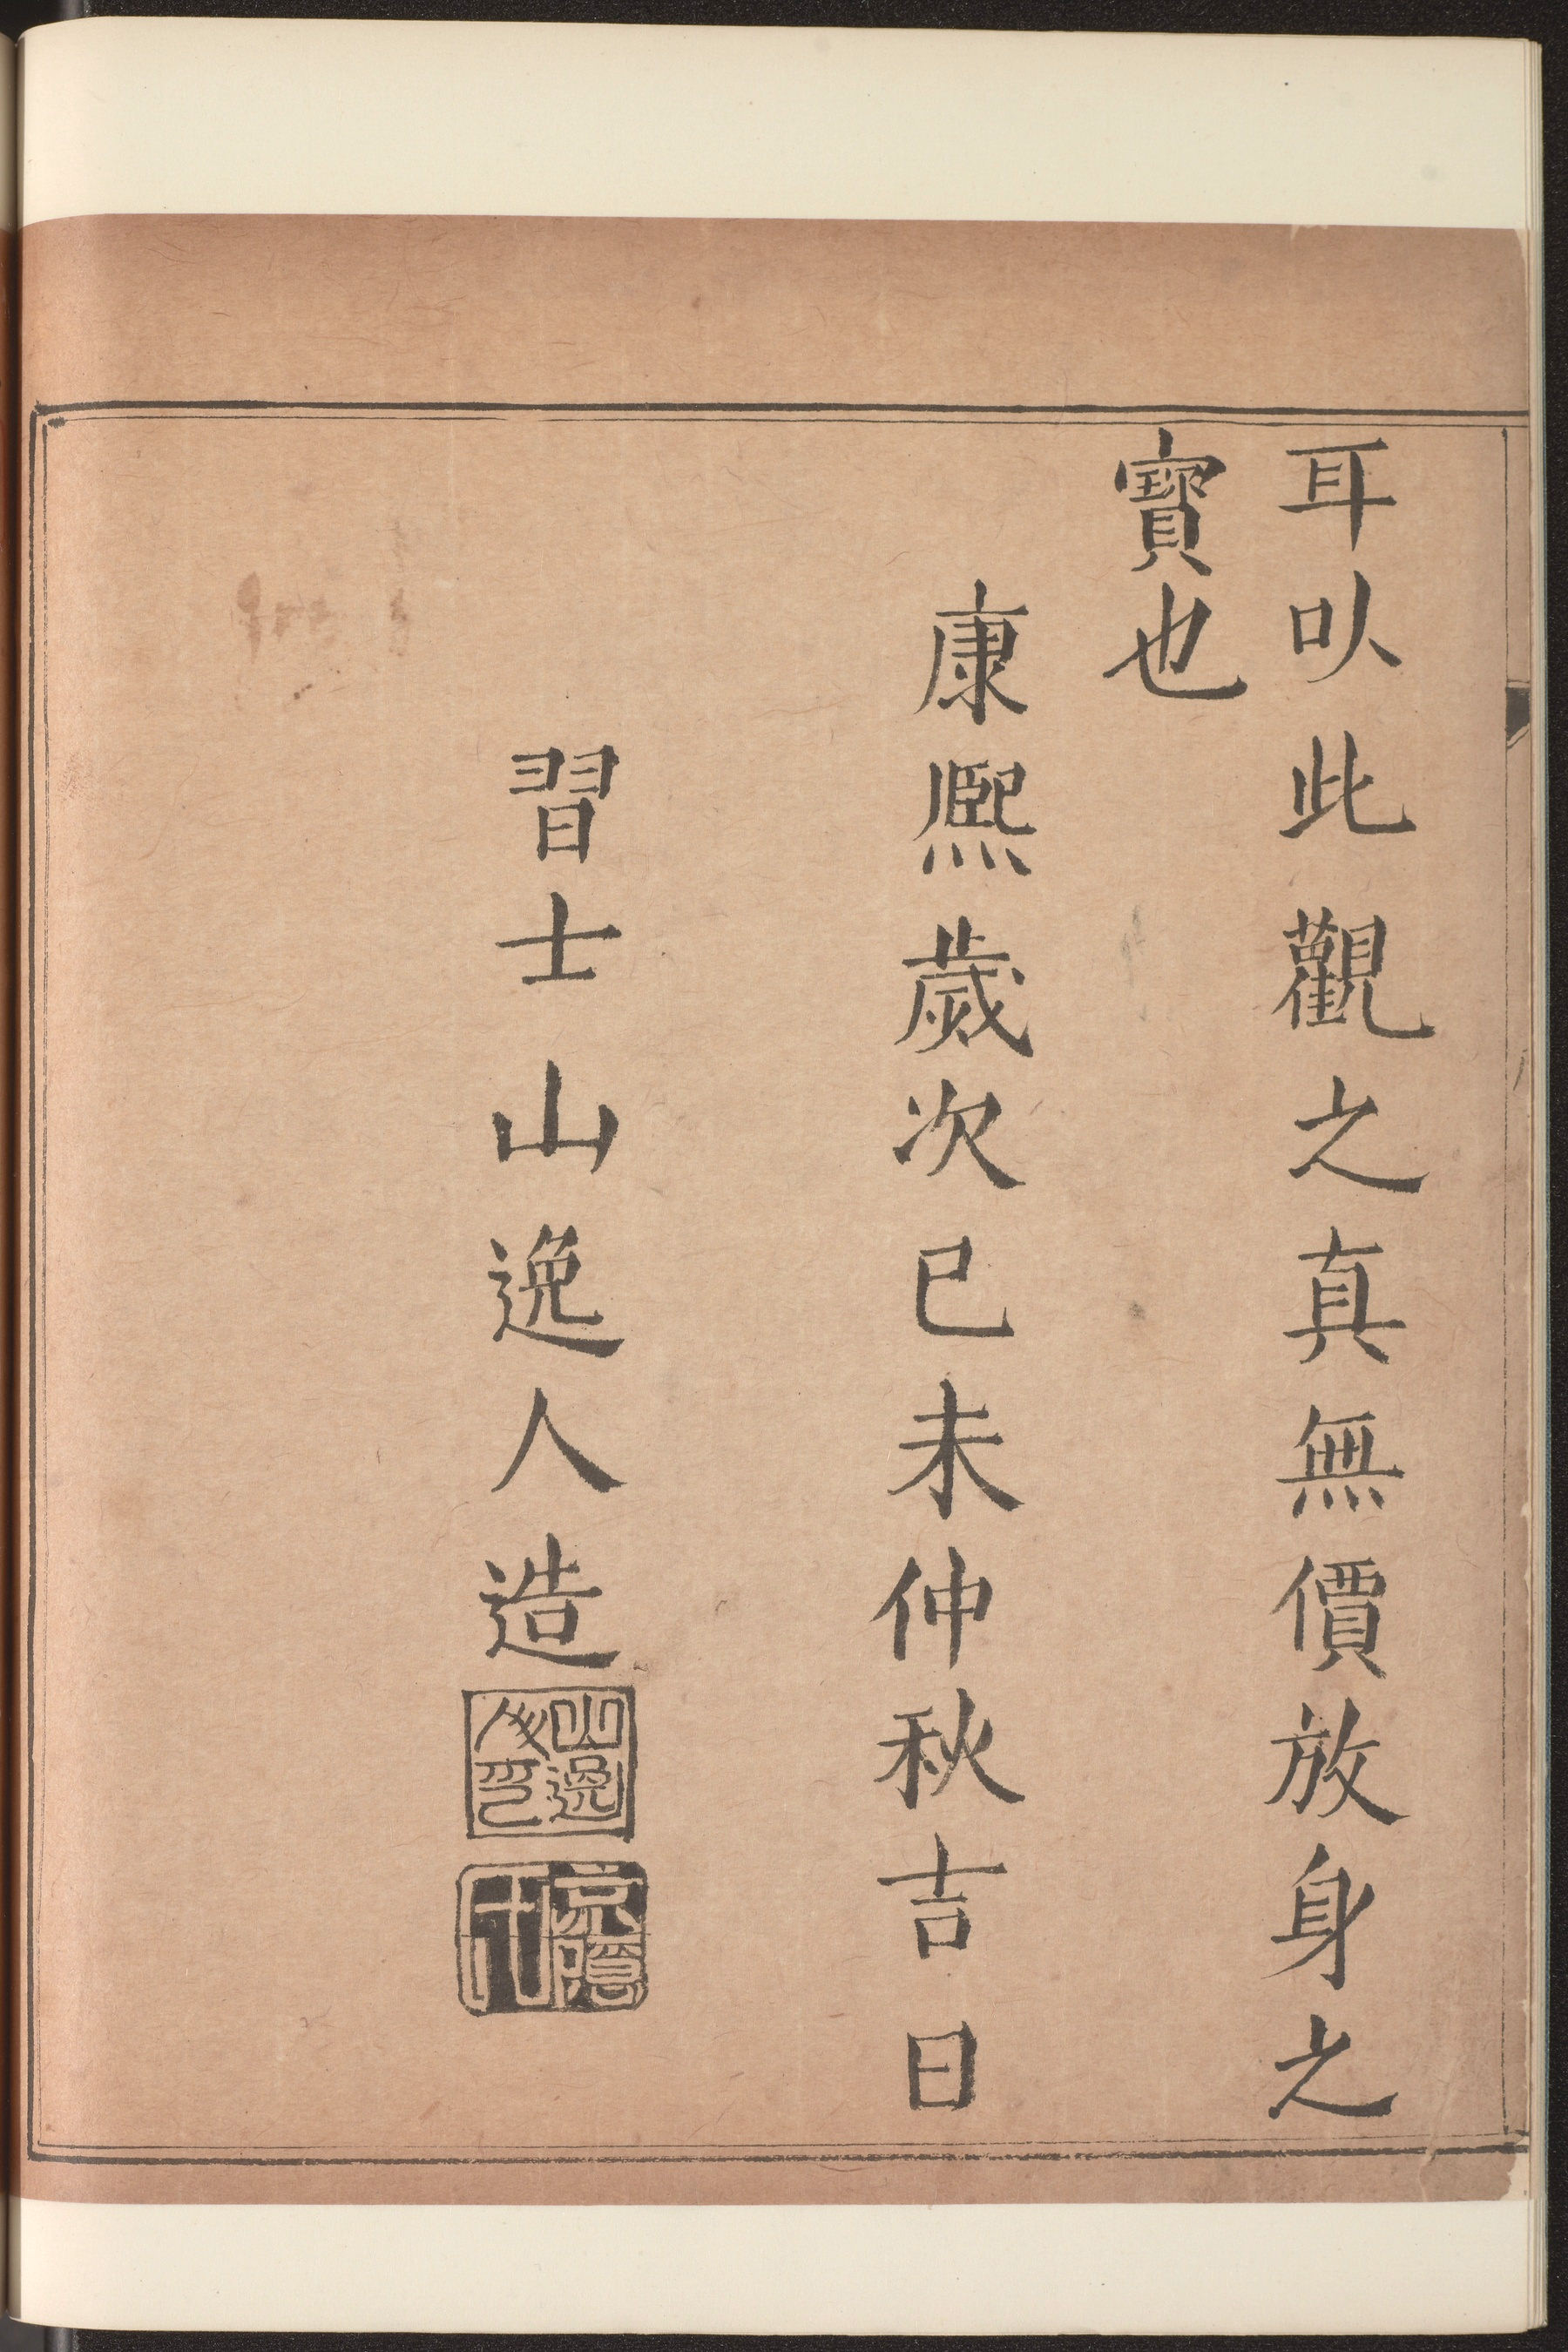 耳㕥此觀之真無價放身之
寳也
康熙歲次已未仲秋吉日
習士山逸人造
山逸人印